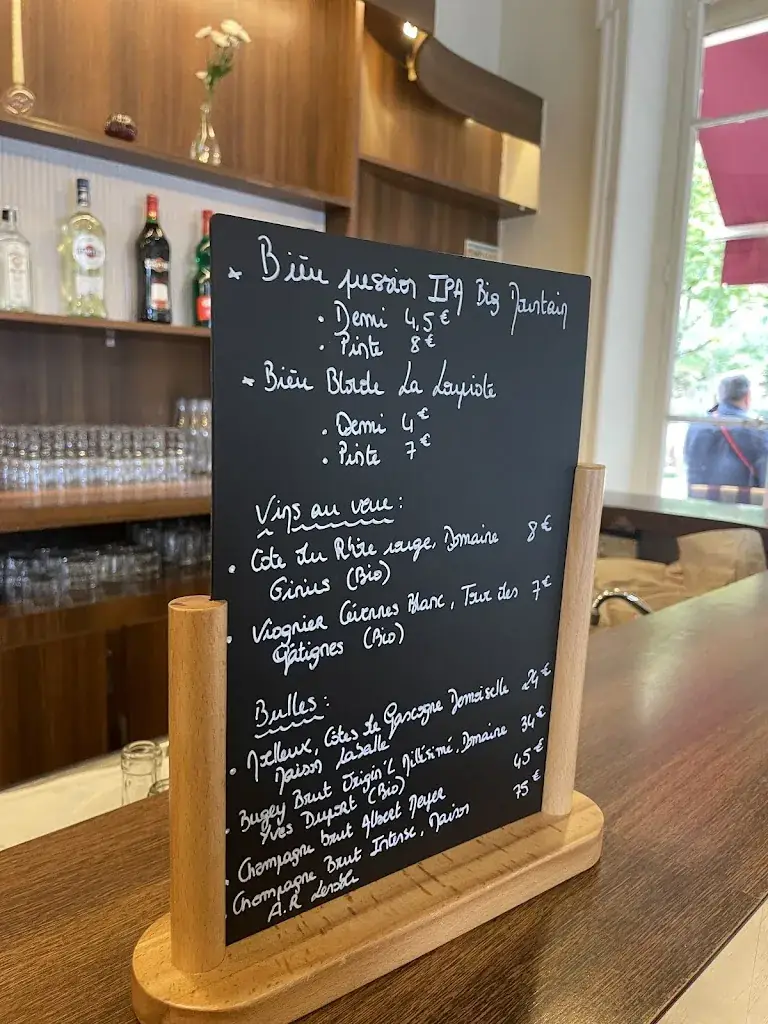 * Bière pression IPA Big Mountain
• Demi 4,5€
• Pinte 8€
* Bière Blonde La Loupiote
• Demi 4€
• Pinte 7€
Vins au verre :
• Côte du Rhône rouge, Domaine 8€
Girius (Bio)
• Viognier Cévennes Blanc, Tour des 7€
Gatignes (Bio)
Bulles :
• Moelleux, Côtes de Gascogne Domoiselle 24€
Maison Lasalle
• Bugey Brut Origin'L Millésimé, Domaine 34€
Yves Duport (Bio)
• Champagne brut Albert Meyer 45€
• Champagne Brut Intense, Maison 75€
A.R Lenoble